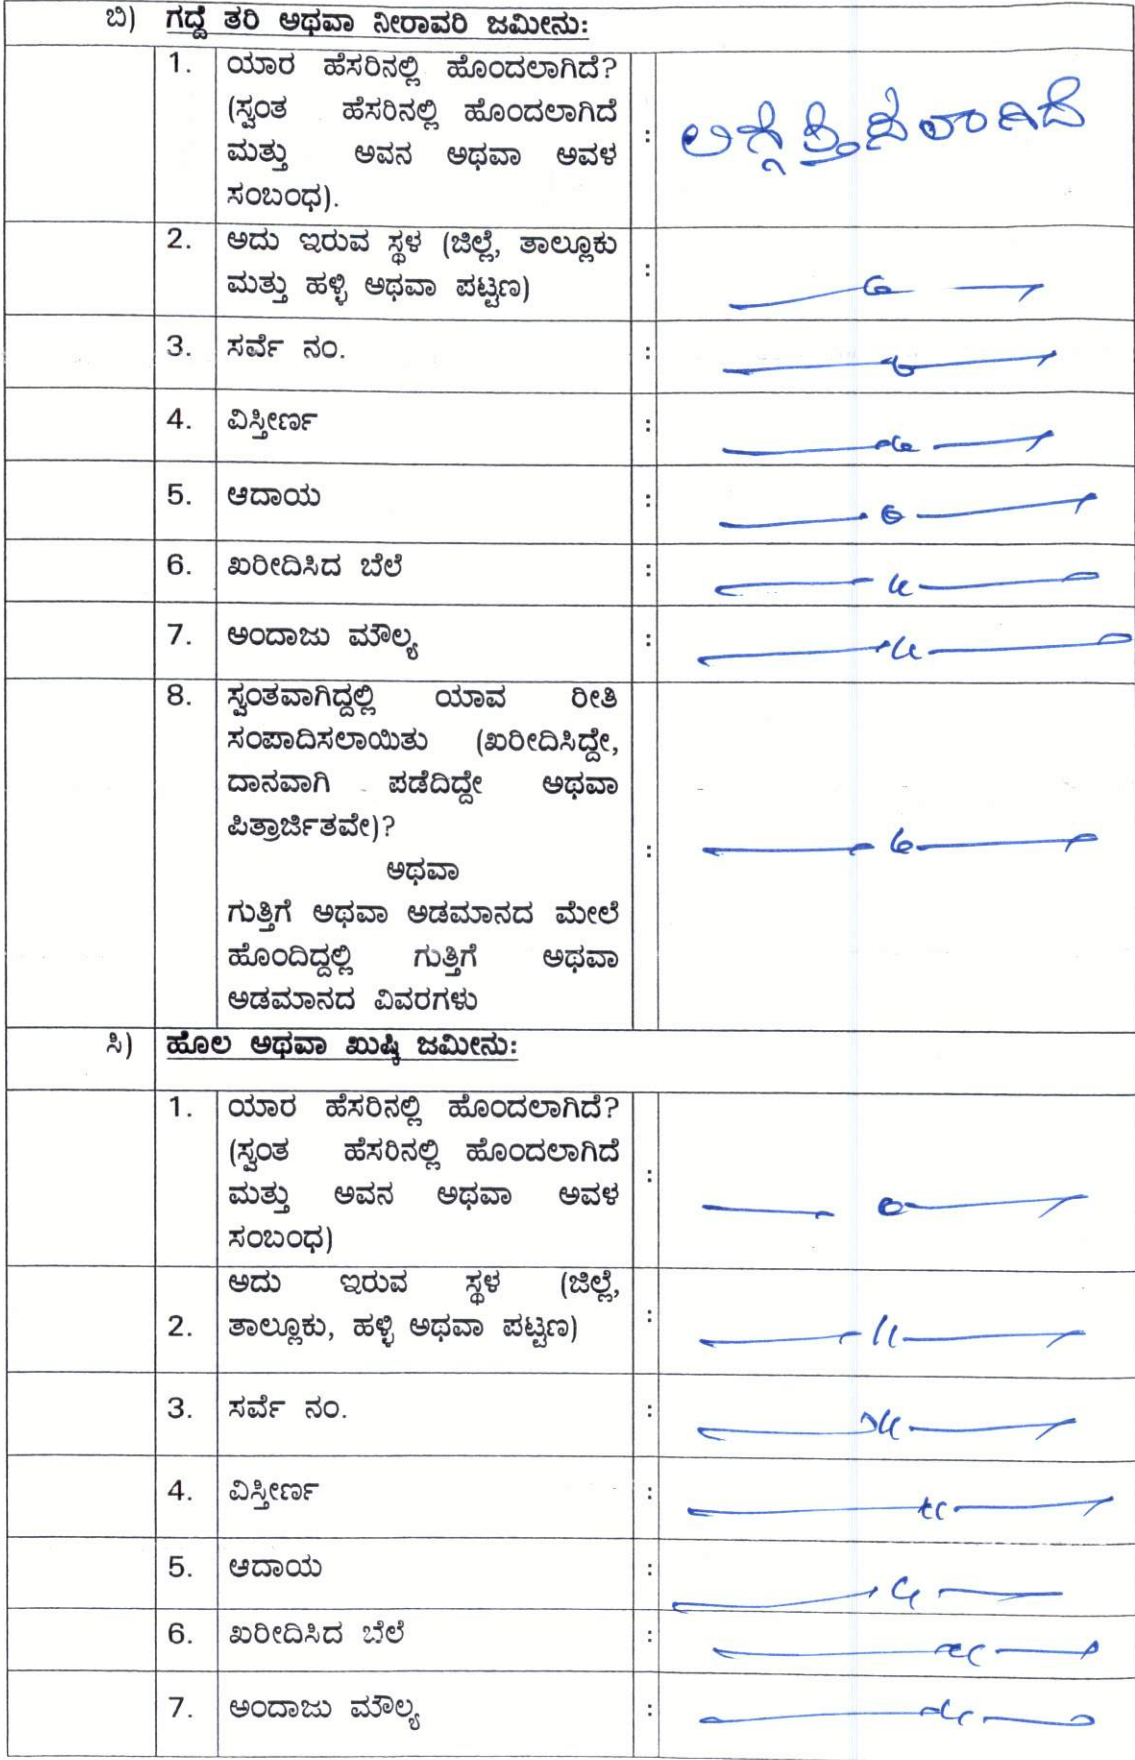 ಬಿ) ಗದ್ದೆ ತರಿ ಅಥವಾ ನೀರಾವರಿ ಜಮೀನು:
1. ಯಾರ ಹೆಸರಿನಲ್ಲಿ ಹೊಂದಲಾಗಿದೆ? :
(ಸ್ವಂತ ಹೆಸರಿನಲ್ಲಿ ಹೊಂದಲಾಗಿದೆ
ಮತ್ತು ಅವನ ಅಥವಾ ಅವಳ
ಸಂಬಂಧ).
2. ಅದು ಇರುವ ಸ್ಥಳ (ಜಿಲ್ಲೆ, ತಾಲ್ಲೂಕು :
ಮತ್ತು ಹಳ್ಳಿ ಅಥವಾ ಪಟ್ಟಣ)
3. ಸರ್ವೆ ನಂ. :
4. ವಿಸ್ತೀರ್ಣ :
5. ಆದಾಯ :
6. ಖರೀದಿಸಿದ ಬೆಲೆ :
7. ಅಂದಾಜು ಮೌಲ್ಯ :
8. ಸ್ವಂತವಾಗಿದ್ದಲ್ಲಿ ಯಾವ ರೀತಿ :
ಸಂಪಾದಿಸಲಾಯಿತು (ಖರೀದಿಸಿದ್ದೇ,
ದಾನವಾಗಿ ಪಡೆದಿದ್ದೇ ಅಥವಾ
ಪಿತ್ರಾರ್ಜಿತವೇ)?
ಅಥವಾ
ಗುತ್ತಿಗೆ ಅಥವಾ ಅಡಮಾನದ ಮೇಲೆ
ಹೊಂದಿದ್ದಲ್ಲಿ ಗುತ್ತಿಗೆ ಅಥವಾ
ಅಡಮಾನದ ವಿವರಗಳು
ಸಿ) ಹೊಲ ಅಥವಾ ಖುಷ್ಕಿ ಜಮೀನು:
1. ಯಾರ ಹೆಸರಿನಲ್ಲಿ ಹೊಂದಲಾಗಿದೆ? :
(ಸ್ವಂತ ಹೆಸರಿನಲ್ಲಿ ಹೊಂದಲಾಗಿದೆ
ಮತ್ತು ಅವನ ಅಥವಾ ಅವಳ
ಸಂಬಂಧ)
ಅದು ಇರುವ ಸ್ಥಳ (ಜಿಲ್ಲೆ,
2. ತಾಲ್ಲೂಕು, ಹಳ್ಳಿ ಅಥವಾ ಪಟ್ಟಣ) :
3. ಸರ್ವೆ ನಂ. :
4. ವಿಸ್ತೀರ್ಣ :
5. ಆದಾಯ :
6. ಖರೀದಿಸಿದ ಬೆಲೆ :
7. ಅಂದಾಜು ಮೌಲ್ಯ :